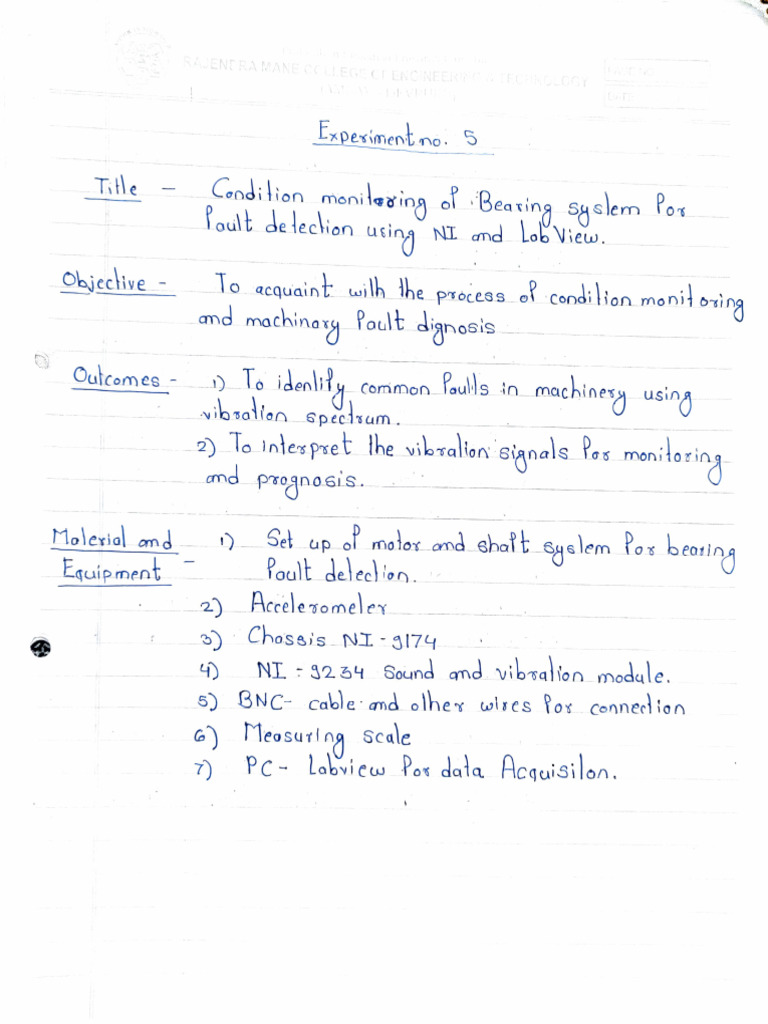 RAJENDRA MANE COLLEGE OF ENGINEERING & TECHNOLOGY
Experiment no. 5
Title - Condition monitoring of Bearing system for
fault detection using NI and Lab View.
Objective - To acquaint with the process of condition monitoring
and machinary fault dignosis
Outcomes - 1) To identify common faults in machinery using
vibration spectrum.
2) To interpret the vibration signals for monitoring
and prognosis.
Material and 1) Set up of motor and shaft system for bearing
Equipment - fault detection.
2) Accelerometer
3) Chassis NI-9174
4) NI-9234 Sound and vibration module.
5) BNC- cable and other wires for connection
6) Measuring scale
7) PC- Labview for data Acquisiton.